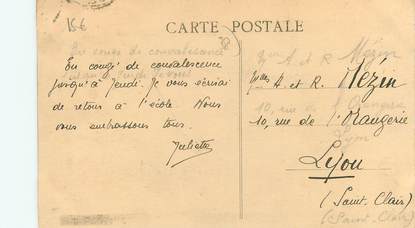 15€
CARTE POSTALE
En congé de convalescence
jusqu'à Jeudi. Je vous écrirai
de retour à l'école. Nous
vous embrassons tous.
Juliette
A. et R. Mézin
10, rue de l'Orangerie
Lyon
(Saint-Clair)